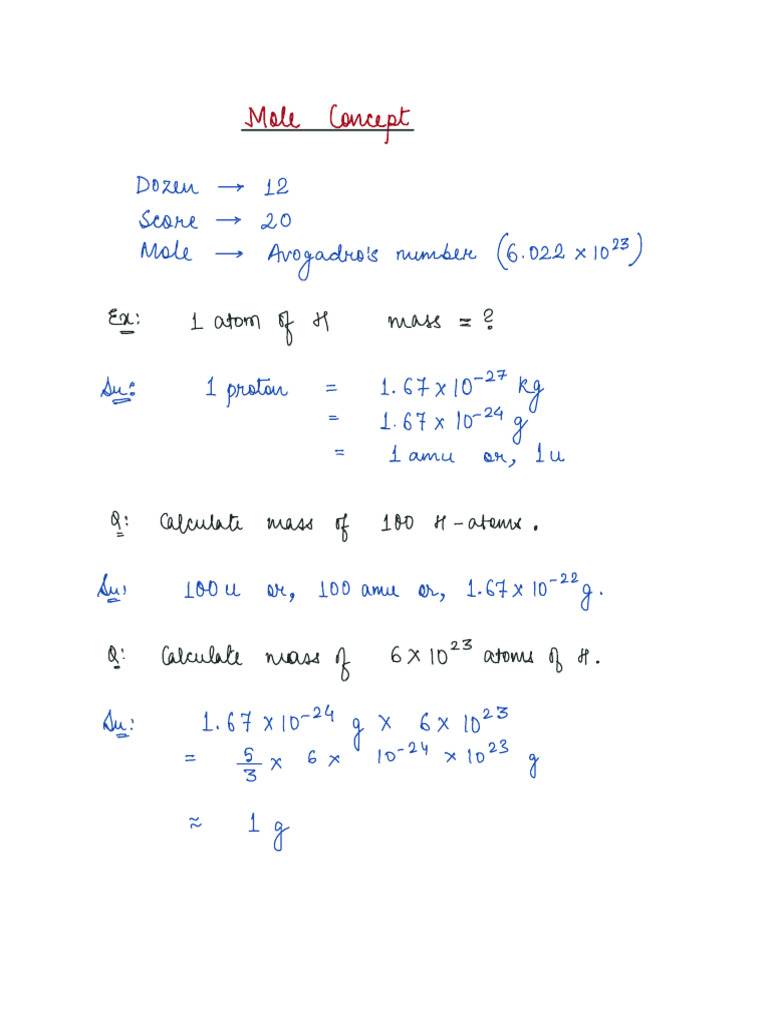 Mole Concept
Dozen → 12
Score → 20
Mole → Avogadro's number (6.022 × 10²³)
Ex: 1 atom of H mass = ?
Su: 1 proton = 1.67 × 10⁻²⁷ kg
= 1.67 × 10⁻²⁴ g
= 1 amu or, 1u
Q: Calculate mass of 100 H-atoms.
Su: 100 u or, 100 amu or, 1.67 × 10⁻²² g.
Q: Calculate mass of 6 × 10²³ atoms of H.
Su: 1.67 × 10⁻²⁴ g × 6 × 10²³
= 5/3 × 6 × 10⁻²⁴ × 10²³ g
≈ 1 g